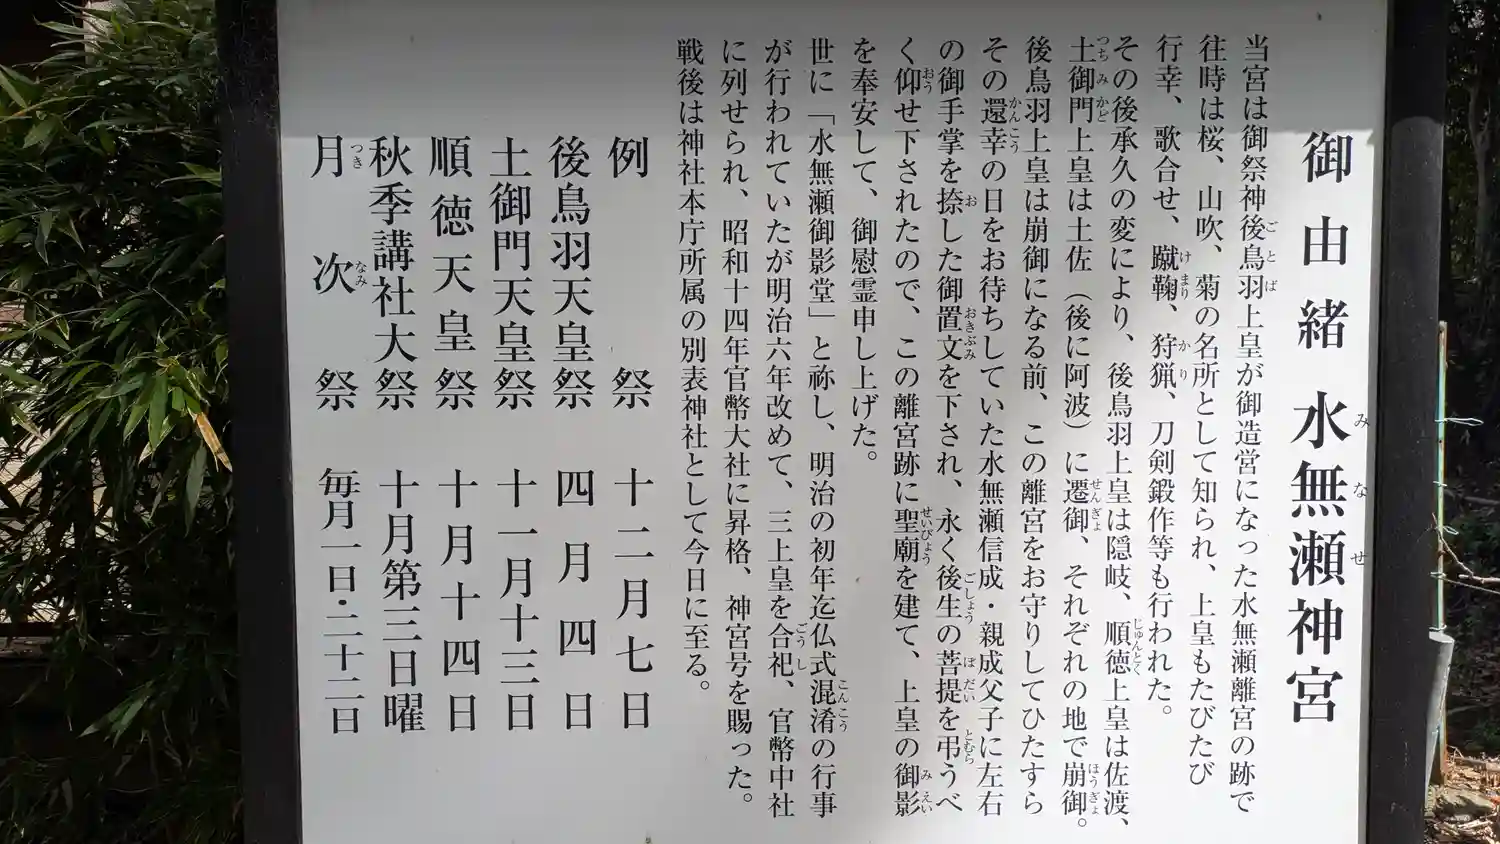 御由緒 水無瀬神宮
みなせ
当宮は御祭神後鳥羽上皇が御造営になった水無瀬離宮の跡で
ごとば
往時は桜、山吹、菊の名所として知られ、上皇もたびたび
行幸、歌合せ、蹴鞠、狩猟、刀剣鍛作等も行われた。
けまり かり
その後承久の変により、後鳥羽上皇は隠岐、順徳上皇は佐渡、
じゅんとく
土御門上皇は土佐（後に阿波）に遷御、それぞれの地で崩御。
つちみかど せんぎょ ほうぎょ
後鳥羽上皇は崩御になる前、この離宮をお守りしてひたすら
その還幸の日をお待ちしていた水無瀬信成・親成父子に左右
かんこう
の御手掌を捺した御置文を下され、永く後生の菩提を弔うべ
お おきぶみ ごしょう ぼだい とむら
く仰せ下されたので、この離宮跡に聖廟を建て、上皇の御影
おう せいびょう みえい
を奉安して、御慰霊申し上げた。
世に「水無瀬御影堂」と祢し、明治の初年迄仏式混淆の行事
こんこう
が行われていたが明治六年改めて、三上皇を合祀、官幣中社
ごうし
に列せられ、昭和十四年官幣大社に昇格、神宮号を賜った。
戦後は神社本庁所属の別表神社として今日に至る。
例祭 十二月七日
後鳥羽天皇祭 四月四日
土御門天皇祭 十一月十三日
順徳天皇祭 十月十四日
秋季講社大祭 十月第三日曜
月次祭 毎月一日・二十二日
つきなみ